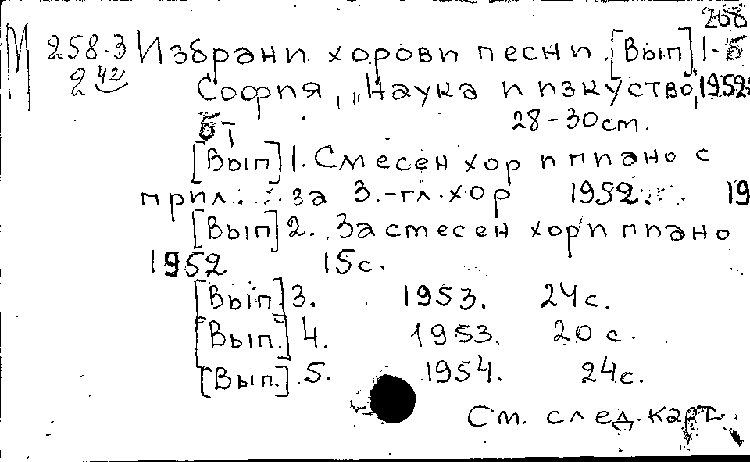 М 258-3 Избрани хорови песни. [Вып] 1-5
2 42 София, "Наука и изкуство, 1952-
5т 28-30cm.
[Вып] 1. Смесен хор и пиано с
прил. за 3.-гл. хор 1952. 19
[Вып] 2. За смесен хор и пиано
1952 15с.
[Вып] 3. 1953. 24с.
[Вып.] 4. 1953. 20 с.
[Вып.] 5. 1954. 24с.
См. след. карт.